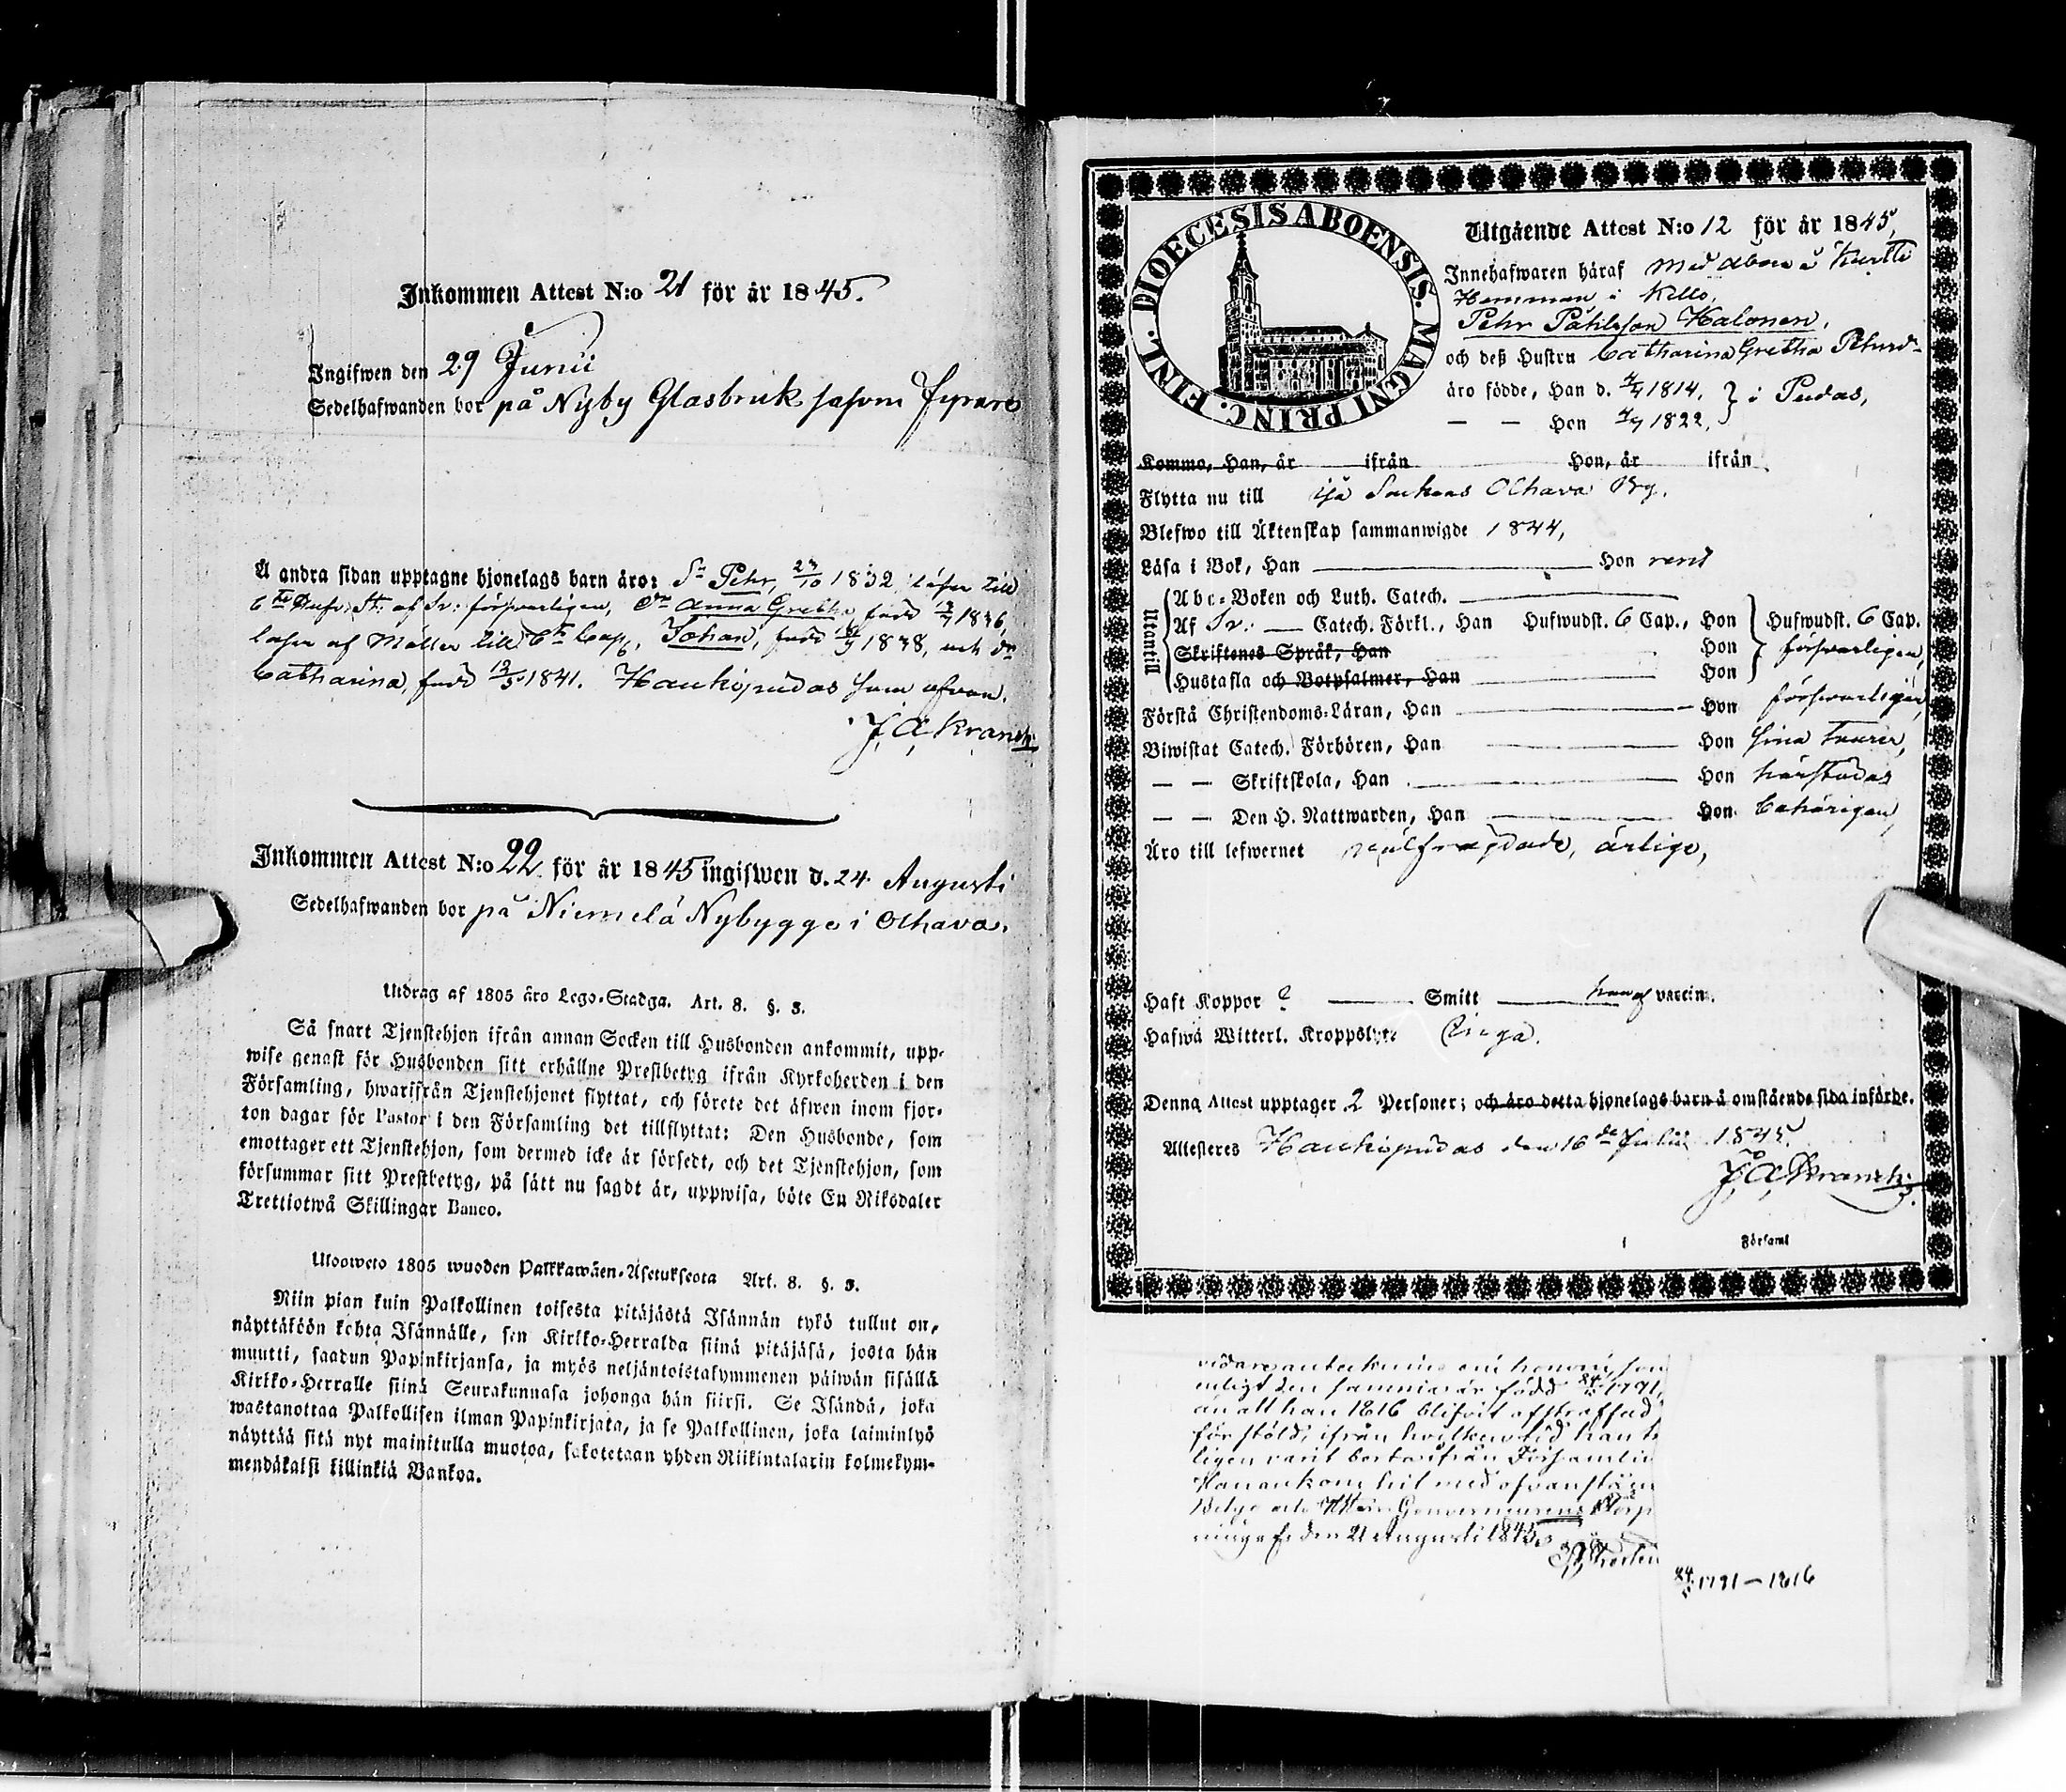 Inkommen Attest N:o 21 för år 1845.
Ingifwen den 29 Junii
Sedelhafwanden bor på Nyby Glasbruk såsom fyrare
Å andra sidan upptagne hjonelags barn äro: Sn Pehr, 23/10 1832, läser till
6te Hufv. St. af Sv: försvarligen, Dr Anna Gretha, född 1836,
läser af Möller till 6te Cap, Johan, född 1838, och Dr
Catharina, född 12/5 1841. Haukipudas som ofvan.
J. A. Kranck
Inkommen Attest N:o 22 för år 1845 ingifwen d. 24 Augusti
Sedelhafwanden bor på Niemelä Nybygge i Olhava.
Utdrag af 1805 års Lego-Stadga. Art. 8. §. 3.
Så snart Tjenstehjon ifrån annan Socken till Husbonden ankommit, upp-
wise genast för Husbonden sitt erhållne Prestbetyg ifrån Kyrkoherden i den
Församling, hwarifrån Tjenstehjonet flyttat, och förete det äfwen inom fjor-
ton dagar för Pastor i den Församling det tillflyttat: Den Husbonde, som
emottager ett Tjenstehjon, som dermed icke är försedt, och det Tjenstehjon, som
försummar sitt Prestbetyg, på sätt nu sagdt är, uppwisa, böte En Riksdaler
Trettiotwå Skillingar Banco.
Ulosweto 1805 wuoden Palkkawäen-Asetuksesta Art. 8. §. 3.
Niin pian kuin Palkollinen toisesta pitäjästä Isännän tykö tullut on,
näyttäköön kohta Isännälle, sen Kirkko-Herralda siinä pitäjäsä, josta hän
muutti, saadun Papinkirjansa, ja myös neljäntoistakymmenen päiwän sisällä
Kirkko-Herralle siinä Seurakunnasa johonga hän siirsi. Se Isändä, joka
wastanottaa Palkollisen ilman Papinkirjata, ja se Palkollinen, joka laiminlyö
näyttää sitä nyt mainitulla muotoa, sakotetaan yhden Riikintalarin kolmekym-
mendäkaksi killinkiä Bankoa.
FINL. DIOECESIS ABOENSIS. MAGNI PRINC.
Utgående Attest N:o 12 för år 1845,
Innehafwaren häraf Med Åboen å
Hemman i Kello,
Pehr Påhlsson Halonen,
och dess Hustru Catharina Gretha Pehrsdr
äro födde, Han d. 4/4 1814, } i Pudas,
— — Hon 4/7 1822,
Komme, Han, år ifrån Hon, år ifrån
Flytta nu till Ijo Sockens Olhava By,
Blefwo till Äktenskap sammanwigde 1844,
Läsa i Bok, Han Hon rent
Utantill
Abc-Boken och Luth. Catech.
Af Sv. Catech. Förkl., Han Hufwudst. 6 Cap., Hon Hufwudst. 6 Cap.
Skriftenes Språk, Han Hon försvarligen,
Hustafla och Botpsalmer, Han Hon
Förstå Christendoms-Läran, Han Hon försvarligen,
Biwistat Catech. Förhören, Han Hon sina turer,
— — Skriftskola, Han Hon härstädes
— — Den H. Nattwarden, Han Hon behörigen,
Äro till lefwernet wälfrägdade, ärlige,
Haft Koppor Smitt han af vaccin.
Hafwa Witterl. Kroppslyte Inga.
Denna Attest upptager 2 Personer; och äro detta hjonelags barn å omstående sida införde.
Attesteres Haukipudas den 16de Julii 1845.
J. A. Kranck
Församl
vidare anteckning om honom, som
enligt den samma är född 1791,
än att han 1816 blifvit afstraffad
för stöld, ifrån hvilken tid han
ligen varit borta ifrån Församlin
Han ankom hit med ofvanstäm
Betyg och Herr Gouverneurens
den 21 Augusti 1845.
1791–1816